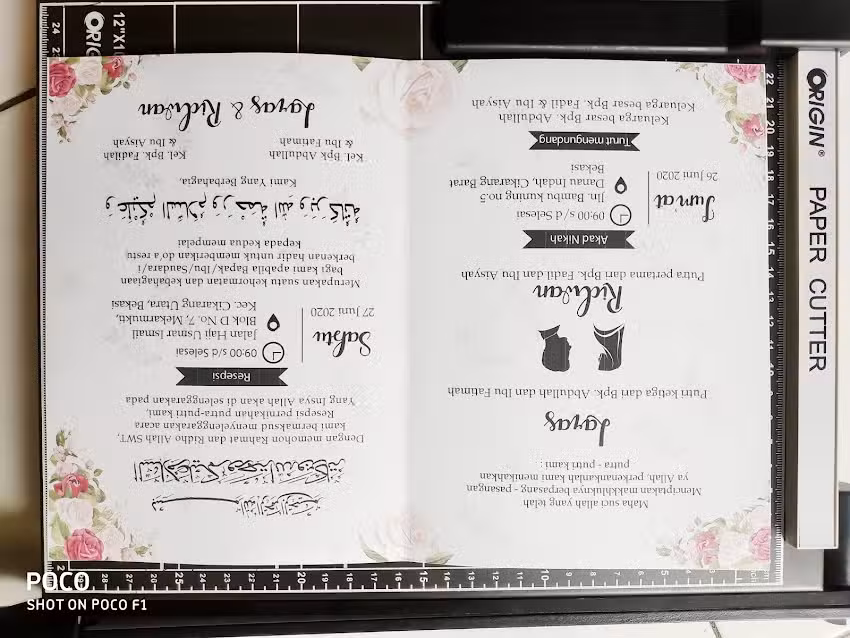 Maha suci allah yang telah
Menciptakan makhluknya berpasang - pasangan
ya Allah, perkenankanlah kami menikahkan
putra - putri kami :
Laras
Putri ketiga dari Bpk. Abdullah dan Ibu Fatimah
Ridwan
Putra pertama dari Bpk. Fadil dan Ibu Aisyah
Akad Nikah
Jum'at
26 Juni 2020
09:00 s/d Selesai
Jln. Bambu kuning no.5
Danau Indah, Cikarang Barat
Bekasi
Turut mengundang
Keluarga besar Bpk. Abdullah
Keluarga besar Bpk. Fadil & Ibu Aisyah
Dengan memohon Rahmat dan Ridho Allah SWT,
kami bermaksud menyelenggarakan acara
Resepsi pernikahan putra-putri kami,
Yang Insya Allah akan di selenggarakan pada
Resepsi
Sabtu
27 Juni 2020
09:00 s/d Selesai
Jalan Haji Usmar Ismail
Blok D No 7, Mekarmukti,
Kec. Cikarang Utara, Bekasi
Merupakan suatu kehormatan dan kebahagiaan
bagi kami apabila Bapak/Ibu/Saudara/i
berkenan hadir untuk memberikan do'a restu
kepada kedua mempelai
و عليكم السلام و رحمة الله و بركاته
Kami Yang Berbahagia,
Kel. Bpk Abdullah
& Ibu Fatimah
Kel. Bpk. Fadilah
& Ibu Aisyah
Laras & Ridwan
ORIGIN® PAPER CUTTER
POCO
SHOT ON POCO F1